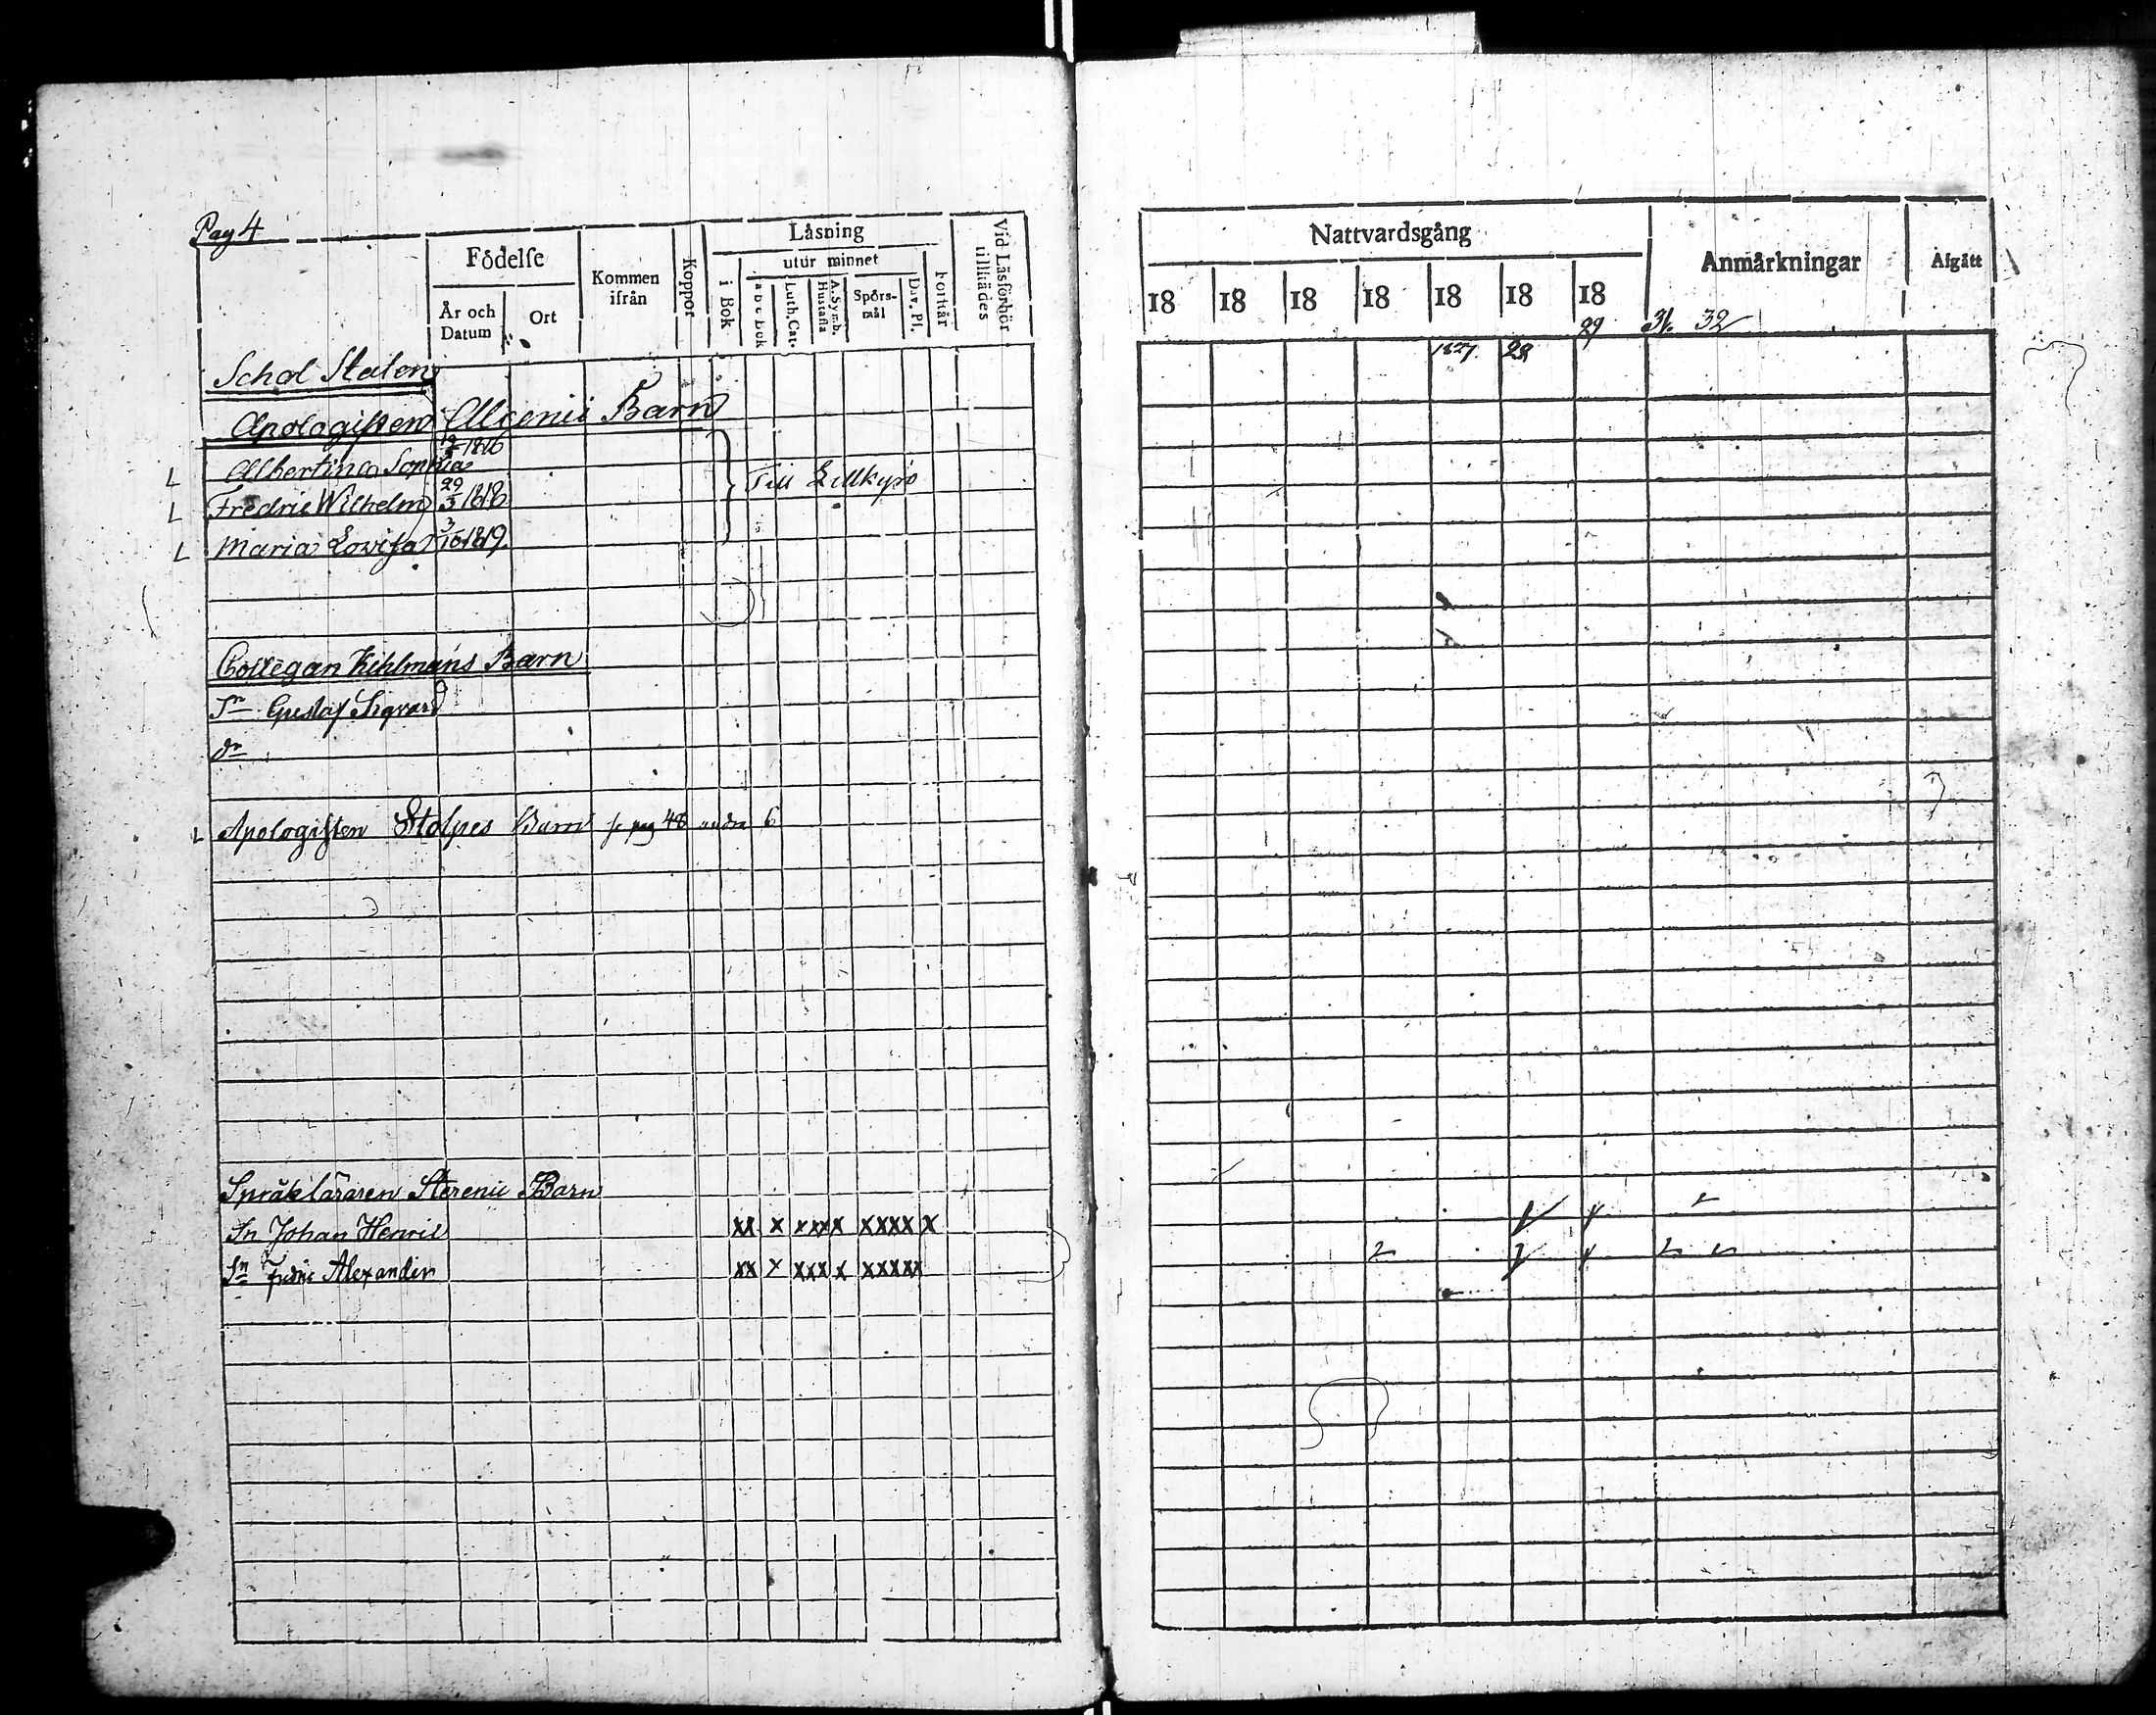 Pag 4
Födelse
År och Datum
Ort
Kommen ifrån
Koppor
Läsning
i Bok
utur minnet
a b c Bok
Luth. Cat.
A. Symb. Hustafla
Spörsmål
Dav. Ps.
Förstår
Vid Läsförhör tillstädes
Nattvardsgång
18 18 18 18 18 18 18
Anmärkningar
Afgått
1827 28 29 31. 32
Schol Staten
Apologisten Alcenii Barn
L Albertina Sophia 1816
L Fredric Wilhelm 29/3 1818
Till Lillkyro
L Maria Lovisa 3/10 1819.
Collegan Kihlmans Barn
Sn Gustaf Sigvard
dr
L Apologisten Stolpes Barn se pag 48 andra 6
Språkläraren Sterenii Barn
Sn Johan Henric xx x xxxx xxxx x
Sn Fredric Alexander xx x xxx x xxxxx